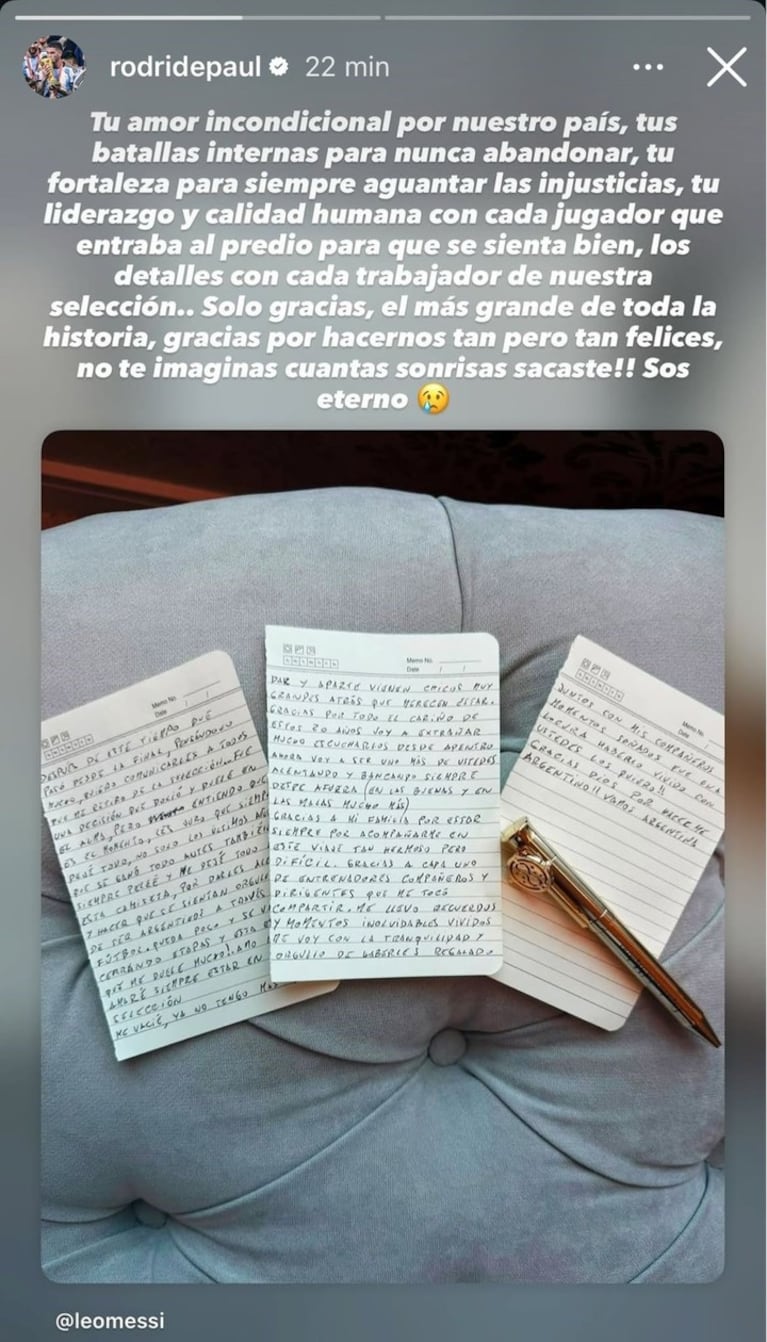 rodridepaul 22 min
Tu amor incondicional por nuestro país, tus
batallas internas para nunca abandonar, tu
fortaleza para siempre aguantar las injusticias, tu
liderazgo y calidad humana con cada jugador que
entraba al predio para que se sienta bien, los
detalles con cada trabajador de nuestra
selección.. Solo gracias, el más grande de toda la
historia, gracias por hacernos tan pero tan felices,
no te imaginas cuantas sonrisas sacaste!! Sos
eterno 😢
Memo No.
Date / /
DESPUÉS DE ESTE TIEMPO QUE
PASÓ DESDE LA FINAL, PENSÁNDOLO
MUCHO, QUIERO COMUNICARLES A TODOS
QUE ME RETIRO DE LA SELECCIÓN. FUE
UNA DECISIÓN QUE DOLIÓ Y DUELE EN
EL ALMA, PERO ENTIENDO QUE
ES EL MOMENTO. LES JURO QUE SIEMP
DEJÉ TODO, NO SOLO LOS ÚLTIMOS AÑOS
QUE SE GANÓ TODO ANTES TAMBIÉN
SIEMPRE PELEÉ Y ME DEJÉ TODO
ESTA CAMISETA, POR DARLES
Y HACER QUE SE SIENTAN ORGUL
DE SER ARGENTINOS A TRAVÉS
FÚTBOL. QUEDA POCO Y SE V
CERRANDO ETAPAS Y ESTA
QUE ME DUELE MUCHO! AMO
AMARÉ SIEMPRE ESTAR EN
SELECCIÓN
ME VACIÉ, YA NO TENGO MÁS
Memo No.
Date / /
DAR Y APARTE VIENEN CHICOS MUY
GRANDES ATRÁS QUE MERECEN ESTAR.
GRACIAS POR TODO EL CARIÑO DE
ESTOS 20 AÑOS VOY A EXTRAÑAR
MUCHO ESCUCHARLOS DESDE ADENTRO
AHORA VOY A SER UNO MÁS DE USTEDES
ALENTANDO Y BANCANDO SIEMPRE
DESDE AFUERA (EN LAS BUENAS Y EN
LAS MALAS MUCHO MÁS)
GRACIAS A MI FAMILIA POR ESTAR
SIEMPRE POR ACOMPAÑARME EN
ESTE VIAJE TAN HERMOSO PERO
DIFÍCIL. GRACIAS A CADA UNO
DE ENTRENADORES COMPAÑEROS Y
DIRIGENTES QUE ME TOCÓ
COMPARTIR. ME LLEVO RECUERDOS
Y MOMENTOS INOLVIDABLES VIVIDOS
ME VOY CON LA TRANQUILIDAD Y
ORGULLO DE HABERLES REGALADO
Memo No.
Date /
JUNTOS CON MIS COMPAÑEROS
MOMENTOS SOÑADOS FUE UNA
LOCURA HABERLO VIVIDO CON
USTEDES LOS QUIERO!!
GRACIAS DIOS POR HACERME
ARGENTINO!! VAMOS ARGENTINA
@leomessi